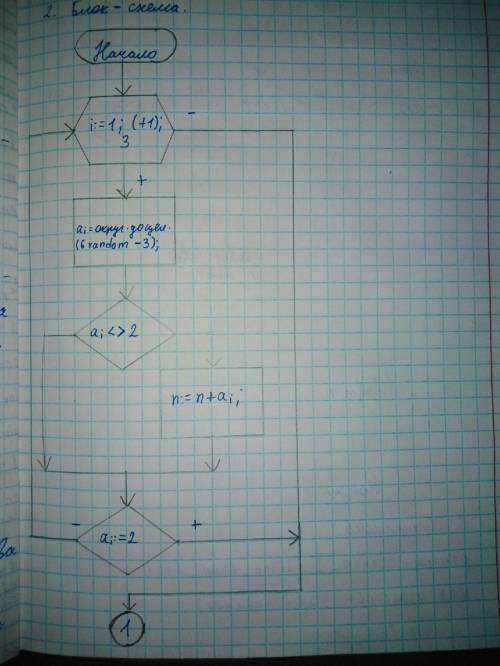 2. Блок-схема.
Начало
i:=1; (+1);
3
-
+
ai=округ.доцел.
(6 random - 3);
ai <> 2
n:= n+ai;
-
+
ai:=2
1